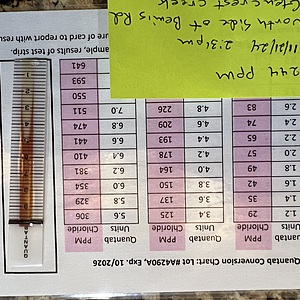 Quantab Conversion Chart: Lot #A4290A, Exp. 10/2026
Quantab Units PPM Chloride Quantab Units PPM Chloride Quantab Units PPM Chloride
1.2 29 3.4 125 5.6 306
1.4 35 3.6 137 5.8 329
1.6 42 3.8 150 6.0 354
1.8 49 4.0 164 6.2 381
2.0 57 4.2 178 6.4 410
2.2 65 4.4 193 6.6 441
2.4 74 4.6 209 6.8 474
2.6 83 4.8 226 7.0 511
550
593
641
QUANTAB
1
2
3
4
5
6
7
8
244 ppm
11/21/24 2:31pm
North Side of Bemis Rd
creek
results of test strip.
of card to report with